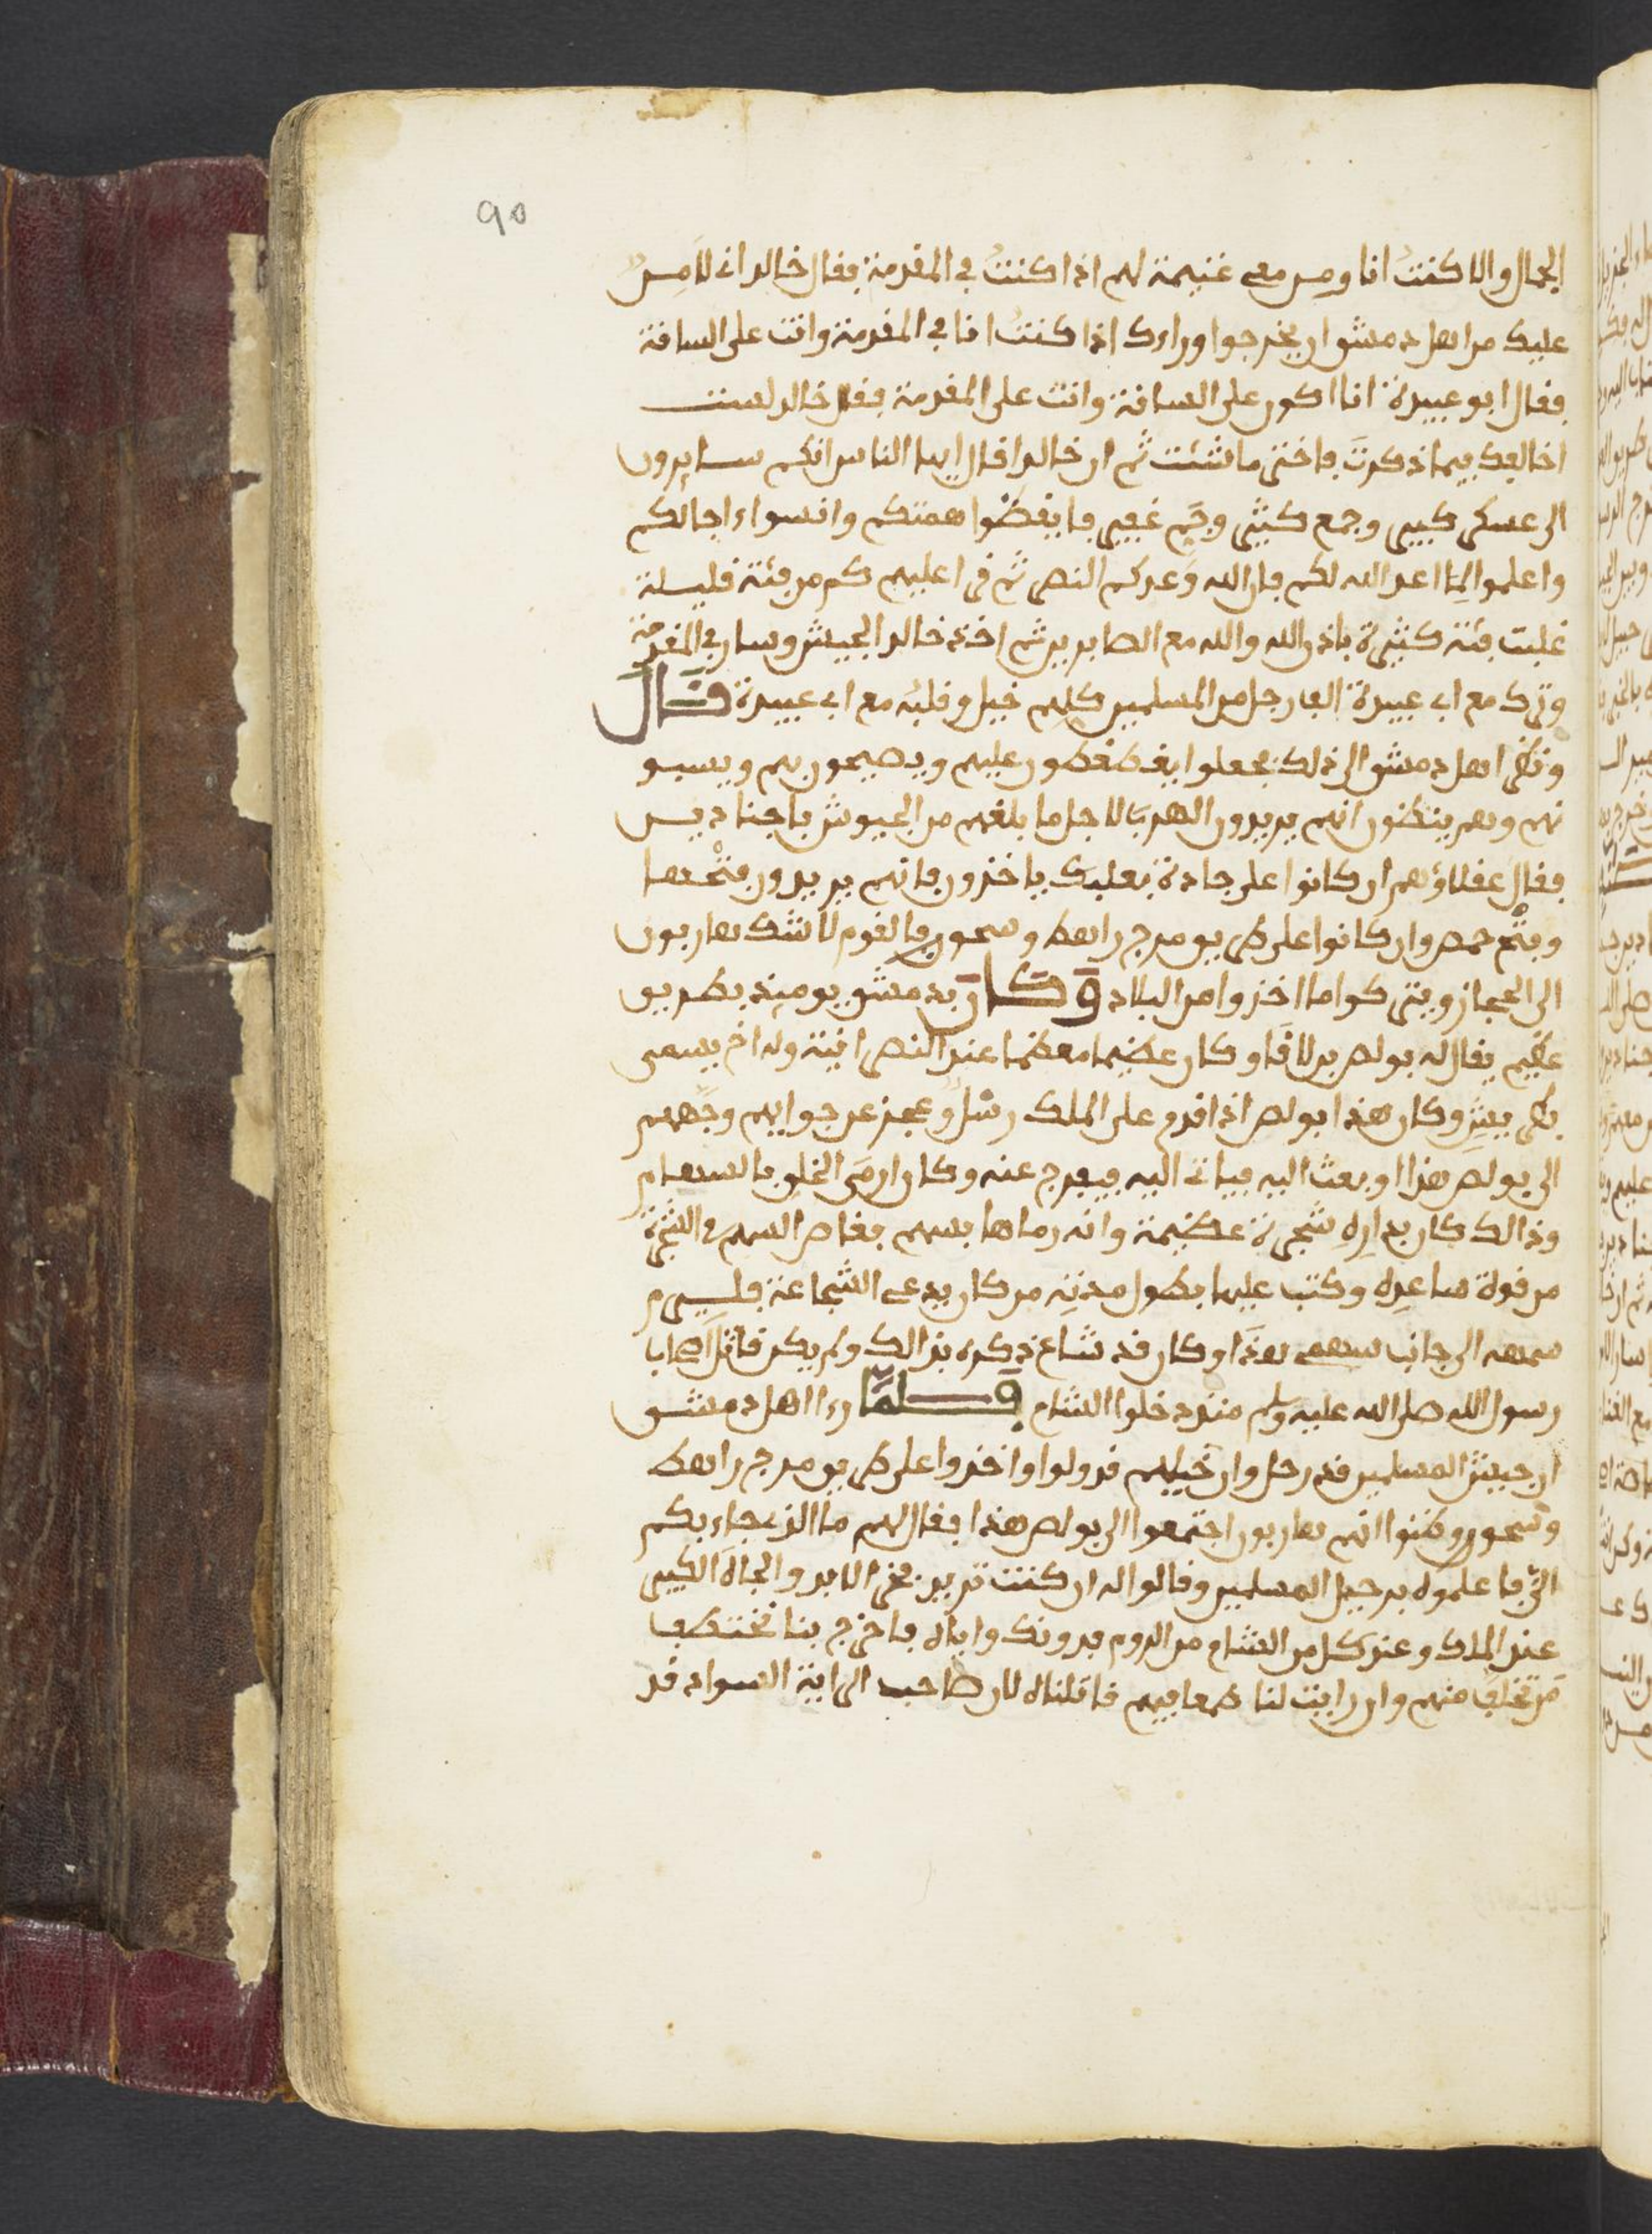 90
الجمال والا كنتُ انا ومن معى غنيمة لهم اذا كنتُ في المقدمة فقال خالد انى لا امن
عليك من اهل دمشق ان يخرجوا وراءك اذا كنتُ انا في المقدمة وانت على الساقة
فقال ابو عبيدة انا اكون على الساقة وانت على المقدمة فقال خالد لست
اخالفك فيما ذكرتَ فاختر ما شئت ثم ان خالدا قال ايها الناس انكم سايرون
الى عسكر كبير وجمع كثير وجَمٍ غفير فايقضُوا همتكم وانسوا اجالكم
واعلموا لِمَا اعد الله لكم فان الله وَعدكم النصر ثم قرا عليهم كم من فئة قليلة
غلبت فئة كثيرة باذن الله والله مع الصابرين ثم اخذ خالد الجيش وسار في المقدمة
وترك مع ابى عبيدة الف رجل من المسلمين كلهم خيل وقلبه مع ابى عبيدة قَالَ
ونظر اهل دمشق الى ذلك فجعلوا يغطغطون عليهم ويصيحون بهم ويسبو
نهم وهم يظنون انهم يريدون الهرب لاجل ما بلغهم من الجيوش باجنادين
فقال عقلاؤهم ان كانوا على جادة بعلبك ياخذون فانهم يريدون فتْحها
وفتْح حمص وان كانوا على طريق مرج راهط وسحور فالقوم لا شك هاربون
الى الحجاز ويتركوا ما اخذوا من البلاد وَكَانَ بدمشق يوميذ بطريق
عظيم يقال له بولص بن لاقا وكان عظيما معظما عند النصرانية وله اخ يسمى
بطريس وكان هذا بولص اذا قدم على الملك رسْل وعجز عن جوابهم وجَّههم
الى بولص هذا او بعث اليه فياتى اليه فيفرج عنه وكان ارمَى الخلق بالسهام
وذالك كان بدارِه شجرة عظيمة وانه رماها بسهم فغاص السهم في الشجرة
من قوة ساعده وكتب عليها بطول مدته من كان يدعى الشجاعة فليرم
سهمه الى جانب سهمى هذا وكان قد شاع ذكره بذالك ولم يكن قاتل اصحاب
رسول الله صلى الله عليه وسلم منذ دخلوا الشام فَلَمَّا رءا اهل دمشق
ان جيش المسلمين قد رحل وان خيلهم قد ولوا واخذوا على طريق مرج راهط
وسحور وظنوا انهم هاربون اجتمعوا الى بولص هذا فقال لهم ما الذي جاء بكم
الىّ فاعلموه برحيل المسلمين وقالوا له ان كنت تريد فخر الابد والجاهَ الكبير
عند الملك وعند كل من الشام من الروم فدونك واياه فاخرج بنا نختطف
مَن تخلف منهم وان رايت لنا طمعا فيهم قاتلناه لان صاحب الراية السوداء قد